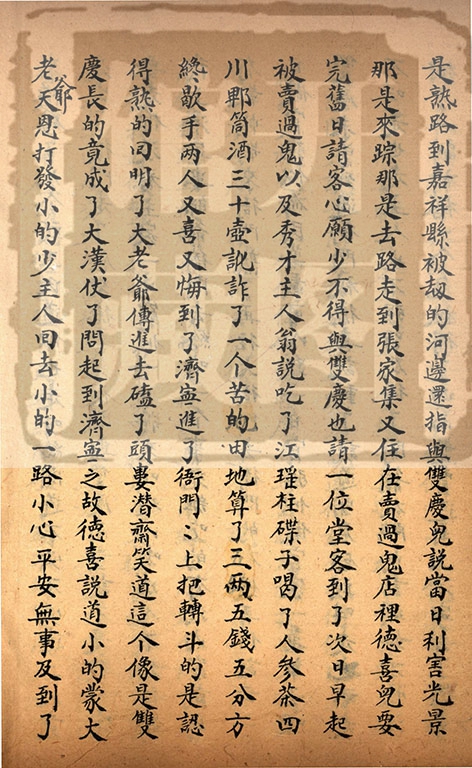 是熟路到嘉祥縣被刼的河邊還指與雙慶兒說當日利害光景
那是來踪那是去路走到張家集又住在賣過鬼店裡德喜兒要
完舊日請客心願少不得與雙慶也請一位堂客到了次日早起
被賣過鬼以及秀才主人翁說吃了江瑤柱碟子喝了人參茶四
川郫筒酒三十壺訛詐了一个苦的田地算了三兩五錢五分方
終歇手两人又喜又悔到了濟寧進了衙門〻上把轉斗的是認
得熟的回明了大老爺傳進去磕了頭婁潜齋笑道這个像是雙
慶長的竟成了大漢伏了問起到濟寧之故德喜說道小的蒙大
老爺天恩打發小的少主人回去小的一路小心平安無事及到了